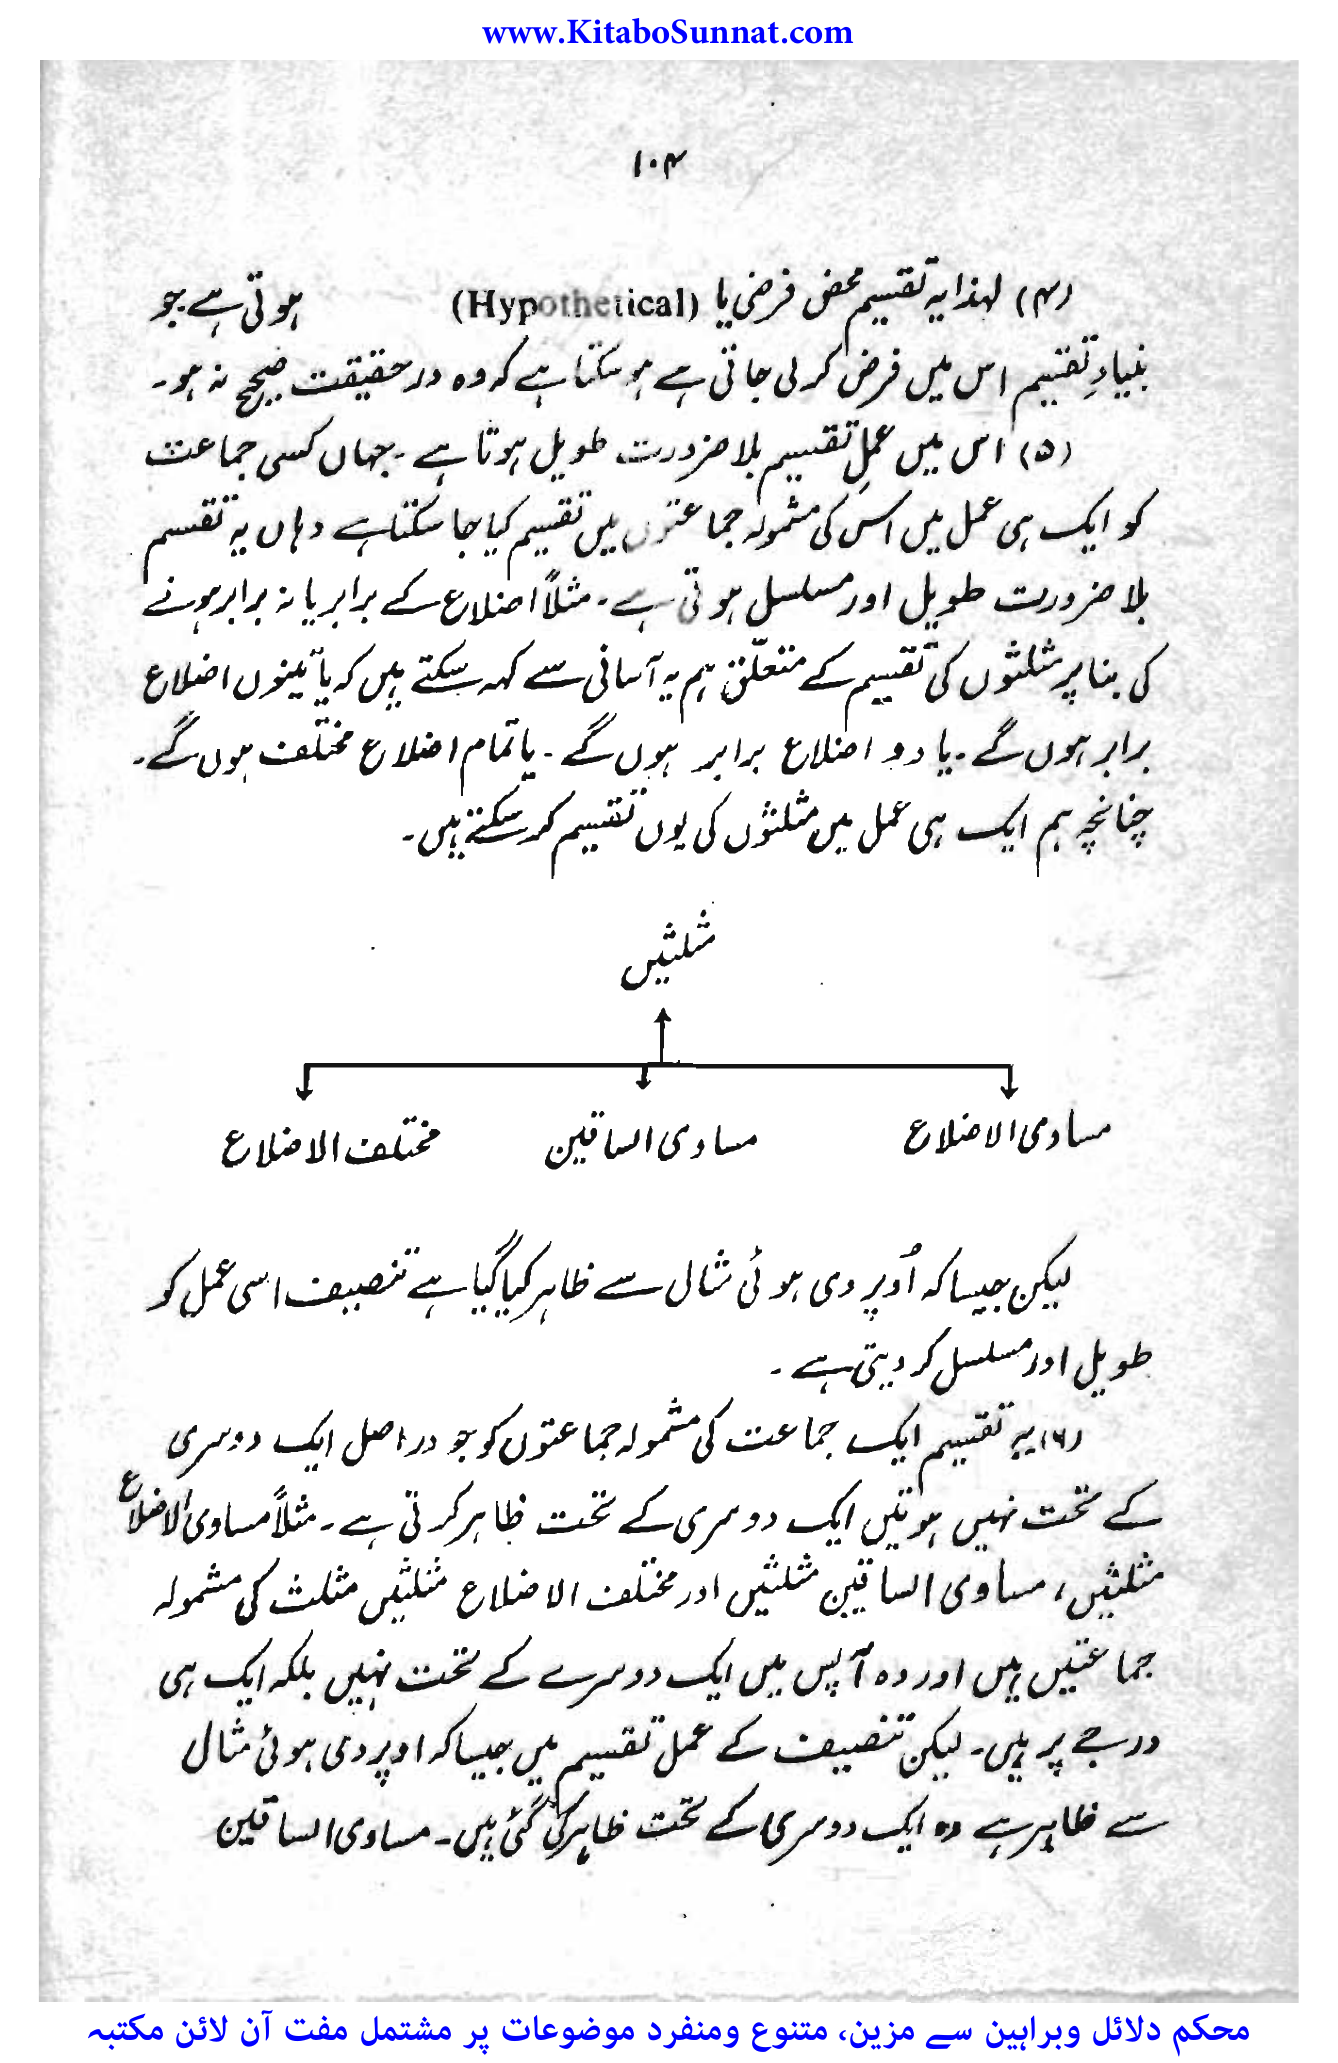 www.KitaboSunnat.com
۱۰۴
(۴) لہذا یہ تقسیم محض فرضی یا (Hypothetical) ہوتی ہے جو
بنیادِ تقسیم اس میں فرض کر لی جاتی ہے ہو سکتا ہے کہ وہ درحقیقت صحیح نہ ہو۔
(۵) اس میں عملِ تقسیم بلا ضرورت طویل ہوتا ہے۔ جہاں کسی جماعت
کو ایک ہی عمل میں اس کی مشمولہ جماعتوں میں تقسیم کیا جا سکتا ہے وہاں یہ تقسیم
بلا ضرورت طویل اور مسلسل ہوتی ہے۔ مثلاً اضلاع کے برابر یا نہ برابر ہونے
کی بنا پر مثلثوں کی تقسیم کے متعلّق ہم یہ آسانی سے کہہ سکتے ہیں کہ یا تینوں اضلاع
برابر ہوں گے۔ یا دو اضلاع برابر ہوں گے۔ یا تمام اضلاع مختلف ہوں گے۔
چنانچہ ہم ایک ہی عمل میں مثلثوں کی یوں تقسیم کر سکتے ہیں۔
مثلثیں
مساوی الاضلاع
مساوی الساقین
مختلف الاضلاع
لیکن جیسا کہ اُوپر دی ہوئی مثال سے ظاہر کیا گیا ہے تنصیف اسی عمل کو
طویل اور مسلسل کر دیتی ہے۔
(۶) یہ تقسیم ایک جماعت کی مشمولہ جماعتوں کو جو دراصل ایک دوسری
کے تحت نہیں ہوتیں ایک دوسری کے تحت ظاہر کرتی ہے۔ مثلاً مساوی الاضلاع
مثلثیں، مساوی الساقین مثلثیں اور مختلف الاضلاع مثلثیں مثلث کی مشمولہ
جماعتیں ہیں اور وہ آپس میں ایک دوسرے کے تحت نہیں بلکہ ایک ہی
درجے پر ہیں۔ لیکن تنصیف کے عمل تقسیم میں جیسا کہ اوپر دی ہوئی مثال
سے ظاہر ہے وہ ایک دوسری کے تحت ظاہر کی گئی ہیں۔ مساوی الساقین
محکم دلائل وبراہین سے مزین، متنوع ومنفرد موضوعات پر مشتمل مفت آن لائن مکتبہ